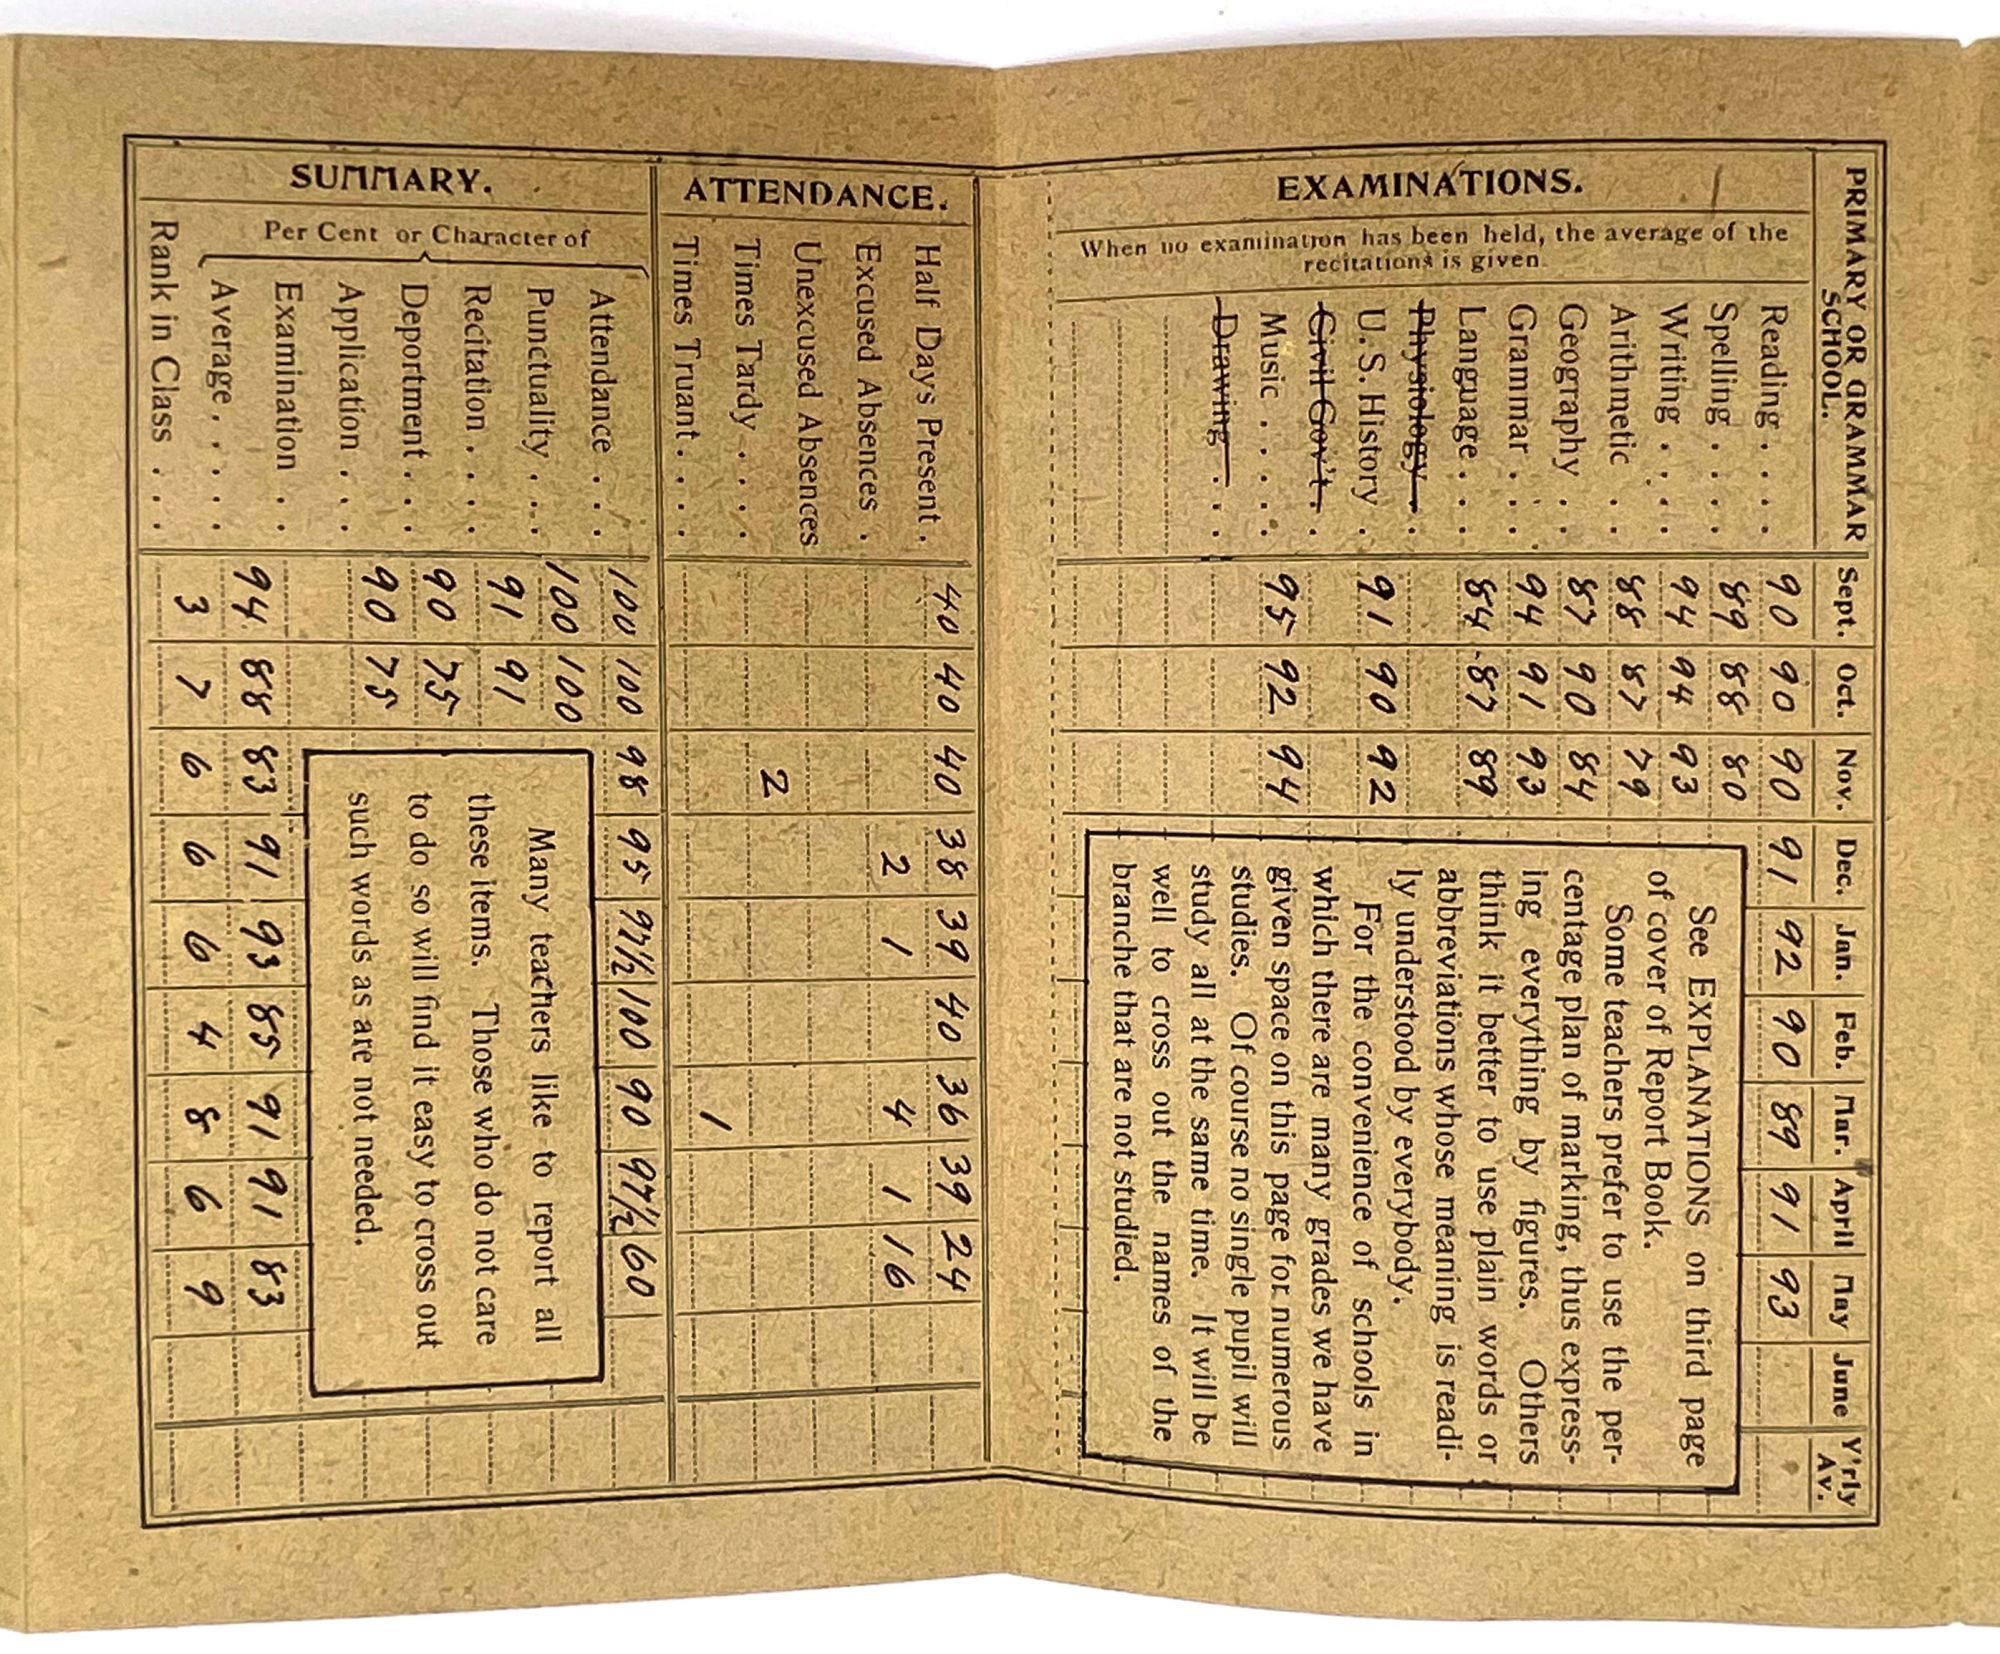 PRIMARY OR GRAMMAR SCHOOL. Sept. Oct. Nov. Dec. Jan. Feb. Mar. April May June Y'rly Av.
EXAMINATIONS.
When no examination has been held, the average of the
recitations is given.
Reading . . . . 90 90 90 91 92 90 89 91 93
Spelling . . . . 89 88 80
Writing . . . . 94 94 93
Arithmetic . . 88 87 79
Geography . . 87 90 84
Grammar . . . 94 91 93
Language . . . 84 87 89
Physiology . .
U. S. History . 91 90 92
Civil Gov't . .
Music . . . . . 95 92 94
Drawing . . .
See EXPLANATIONS on third page
of cover of Report Book.
Some teachers prefer to use the per-
centage plan of marking, thus express-
ing everything by figures. Others
think it better to use plain words or
abbreviations whose meaning is readi-
ly understood by everybody.
For the convenience of schools in
which there are many grades we have
given space on this page for numerous
studies. Of course no single pupil will
study all at the same time. It will be
well to cross out the names of the
branche that are not studied.
ATTENDANCE.
Half Days Present . 40 40 40 38 39 40 36 39 24
Excused Absences . 2 1 4 1 16
Unexcused Absences
Times Tardy . . . . 2
Times Truant . . . . 1
SUMMARY.
Per Cent or Character of
Attendance . . . 100 100 98 95 97½ 100 90 97½ 60
Punctuality . . . 100 100
Recitation . . . . 91 91
Deportment . . . 90 75
Application . . . 90 75
Examination . .
Average . . . . . 94 88 83 91 93 85 91 91 83
Rank in Class . . . 3 7 6 6 6 4 8 6 9
Many teachers like to report all
these items. Those who do not care
to do so will find it easy to cross out
such words as are not needed.